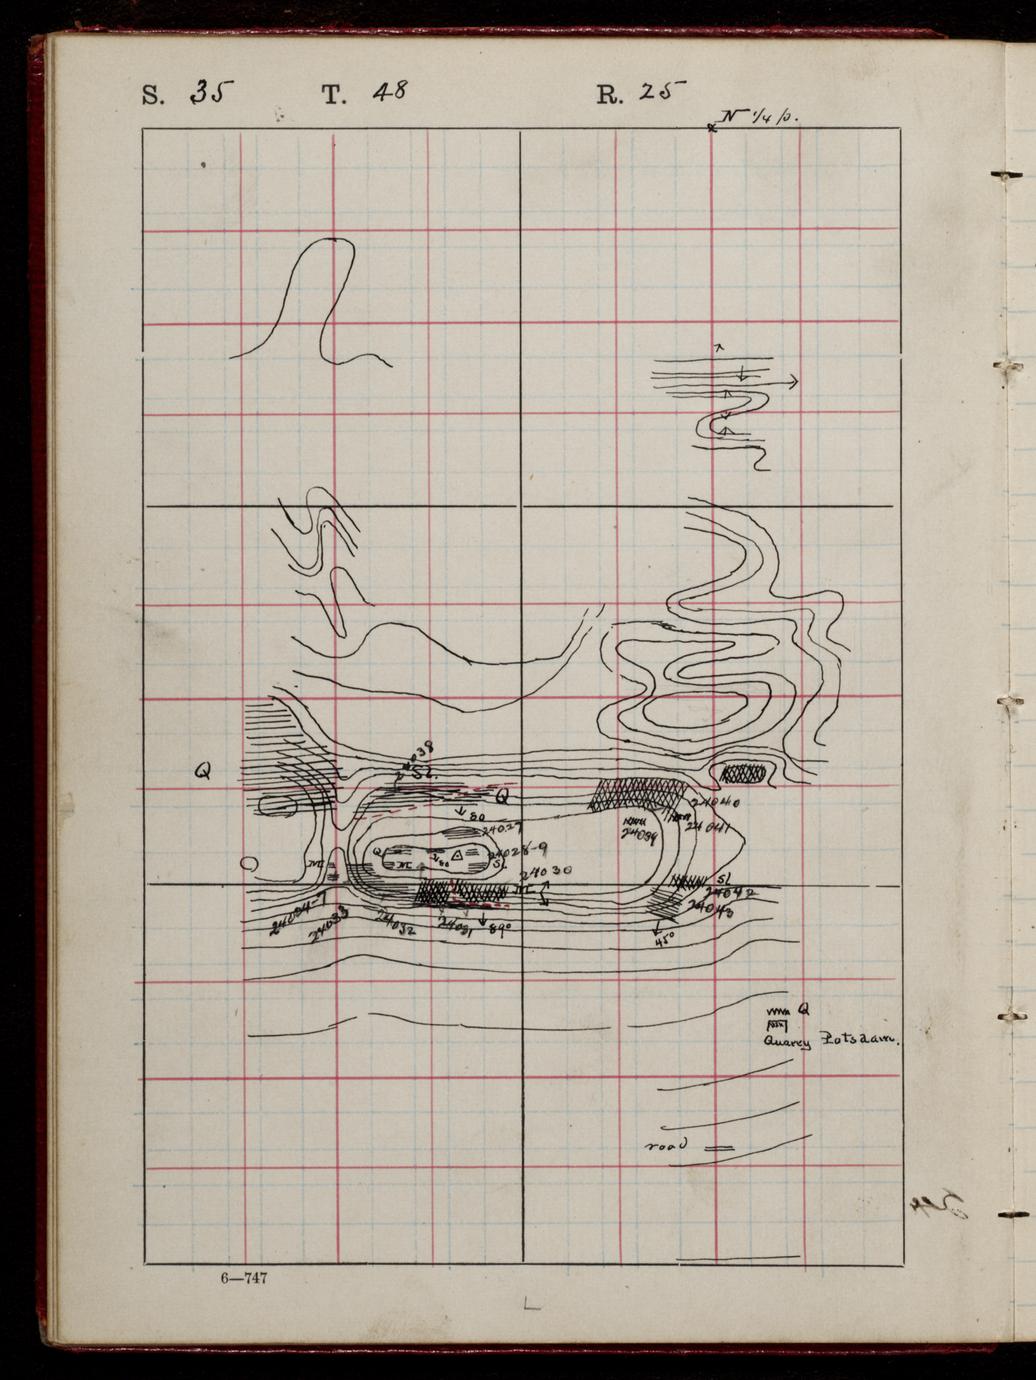 S. 35 T. 48 R. 25
N 1/4 p.
Q
24038
SL.
Q
80
24027
24040
24041
24039
Q
M
80
24028-9
SL
24030
M
M
SL
24042
24043
24034-7
24033
24032
24031
89°
45°
Q
Quarry Potsdam.
road
6—747